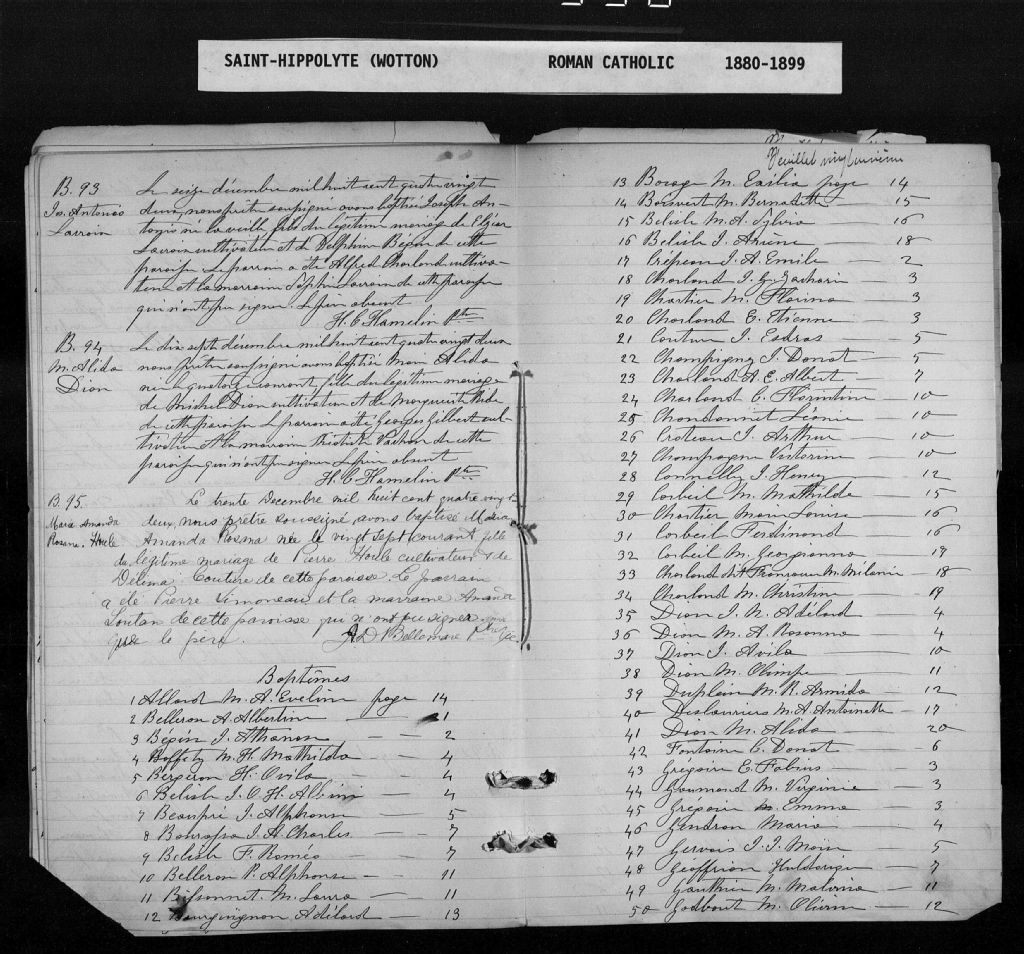 SAINT-HIPPOLYTE (WOTTON) ROMAN CATHOLIC 1880-1899
B. 93
Jos. Antonio
Lavoie
Le seize décembre mil huit cent quatre vingt
deux, nous prêtre soussigné avons baptisé Joseph An-
tonio né la veille fils du légitime mariage de Elzéar
cultivateur et de Delphine Bégin de cette
paroisse. Le parrain a été Alfred Charland cultiva-
teur et la marraine Sophie de cette paroisse
qui n'ont pu signer. Le père absent
H. C. Hamelin Ptre
B. 94
M. Alida
Dion
Le dix sept décembre mil huit cent quatre vingt deux
nous prêtre soussigné avons baptisé Marie Alida
née le quatorze courant fille du légitime mariage
de Michel Dion cultivateur et de Marguerite
de cette paroisse. Le parrain a été Georges Gilbert cul-
tivateur et la marraine Vachon de cette
paroisse qui n'ont pu signer. Le père absent
H. C. Hamelin Ptre
B. 95.
Maria Amanda
Rosana. Houle
Le trente Decembre mil huit cent quatre vingt
deux, nous prêtre soussigné, avons baptisé Maria
Amanda Rosana née le vingt sept courant fille
du légitime mariage de Pierre Houle cultivateur & de
Délima Couture de cette paroisse. Le parrain
a été Pierre Simoneau et la marraine Amanda
de cette paroisse qui n'ont pu signer
que le père.
Bellemare Ptre
Baptêmes
1 Allard M. A. Eveline page 14
2 Belleron A. Albertine — 1
3 Bégin J. Athanase — — 2
4 M. H. Mathilda — 4
5 Bergeron H. Ovila — — 4
6 Belisle J. O. H. Albini — 4
7 Beaupré J. Alphonse — 5
8 Bourassa J. H. Charles — 7
9 Belisle F. Roméo — 7
10 Belleron P. Alphonse — — 11
11 Bissonnet. M. Laura — 11
12 Bourguignon Adélard — 13
Feuillet vingt unième
13 M. Exilia page 14
14 Boisvert M. Bernadette — 15
15 Belisle M. A. Sylvia 16
16 Belisle J. — 18
17 Crépeau J. A. Emile — 2
18 Charland J. G. Zacharie — 3
19 Chartier M. Florina — 3
20 Charland E. Etienne — 3
21 Couture J. Esdras — 5
22 Champigny J. Donat — 5
23 Charland A. E. Albert — 7
24 Charland C. Florentine — 10
25 Chandonnet Léonie — 10
26 Croteau J. Arthur — 10
27 Champagne Victorine — 10
28 Connelly J. Henry — 12
29 Corbeil M. Mathilde — 15
30 Chartier Marie Louise — 16
31 Corbeil Ferdinand — 16
32 Corbeil M. Georgianna — 19
33 Charland dit Francoeur M. Mélanie — 18
34 Charland M. Christine — 19
35 Dion J. N. Adélard — 4
36 Dion M. A. Rosanna — 4
37 Dion J. Avila — 10
38 Dion M. Olimpe — 11
39 Duplein M. R. Armida — 12
40 Deslauriers M. A. Antoinette — 17
41 Dion M. Alida — 20
42 Fontaine C. Donat — 6
43 Grégoire E. Fabius — 3
44 Goumond M. Virginie — 3
45 Grégoire M. Emma — 3
46 Gendron Maria — 4
47 Gervais J. J. Marie — 5
48 Géoffrion — 7
49 Gauthier M. Malvina — 11
50 Godbout M. — 12